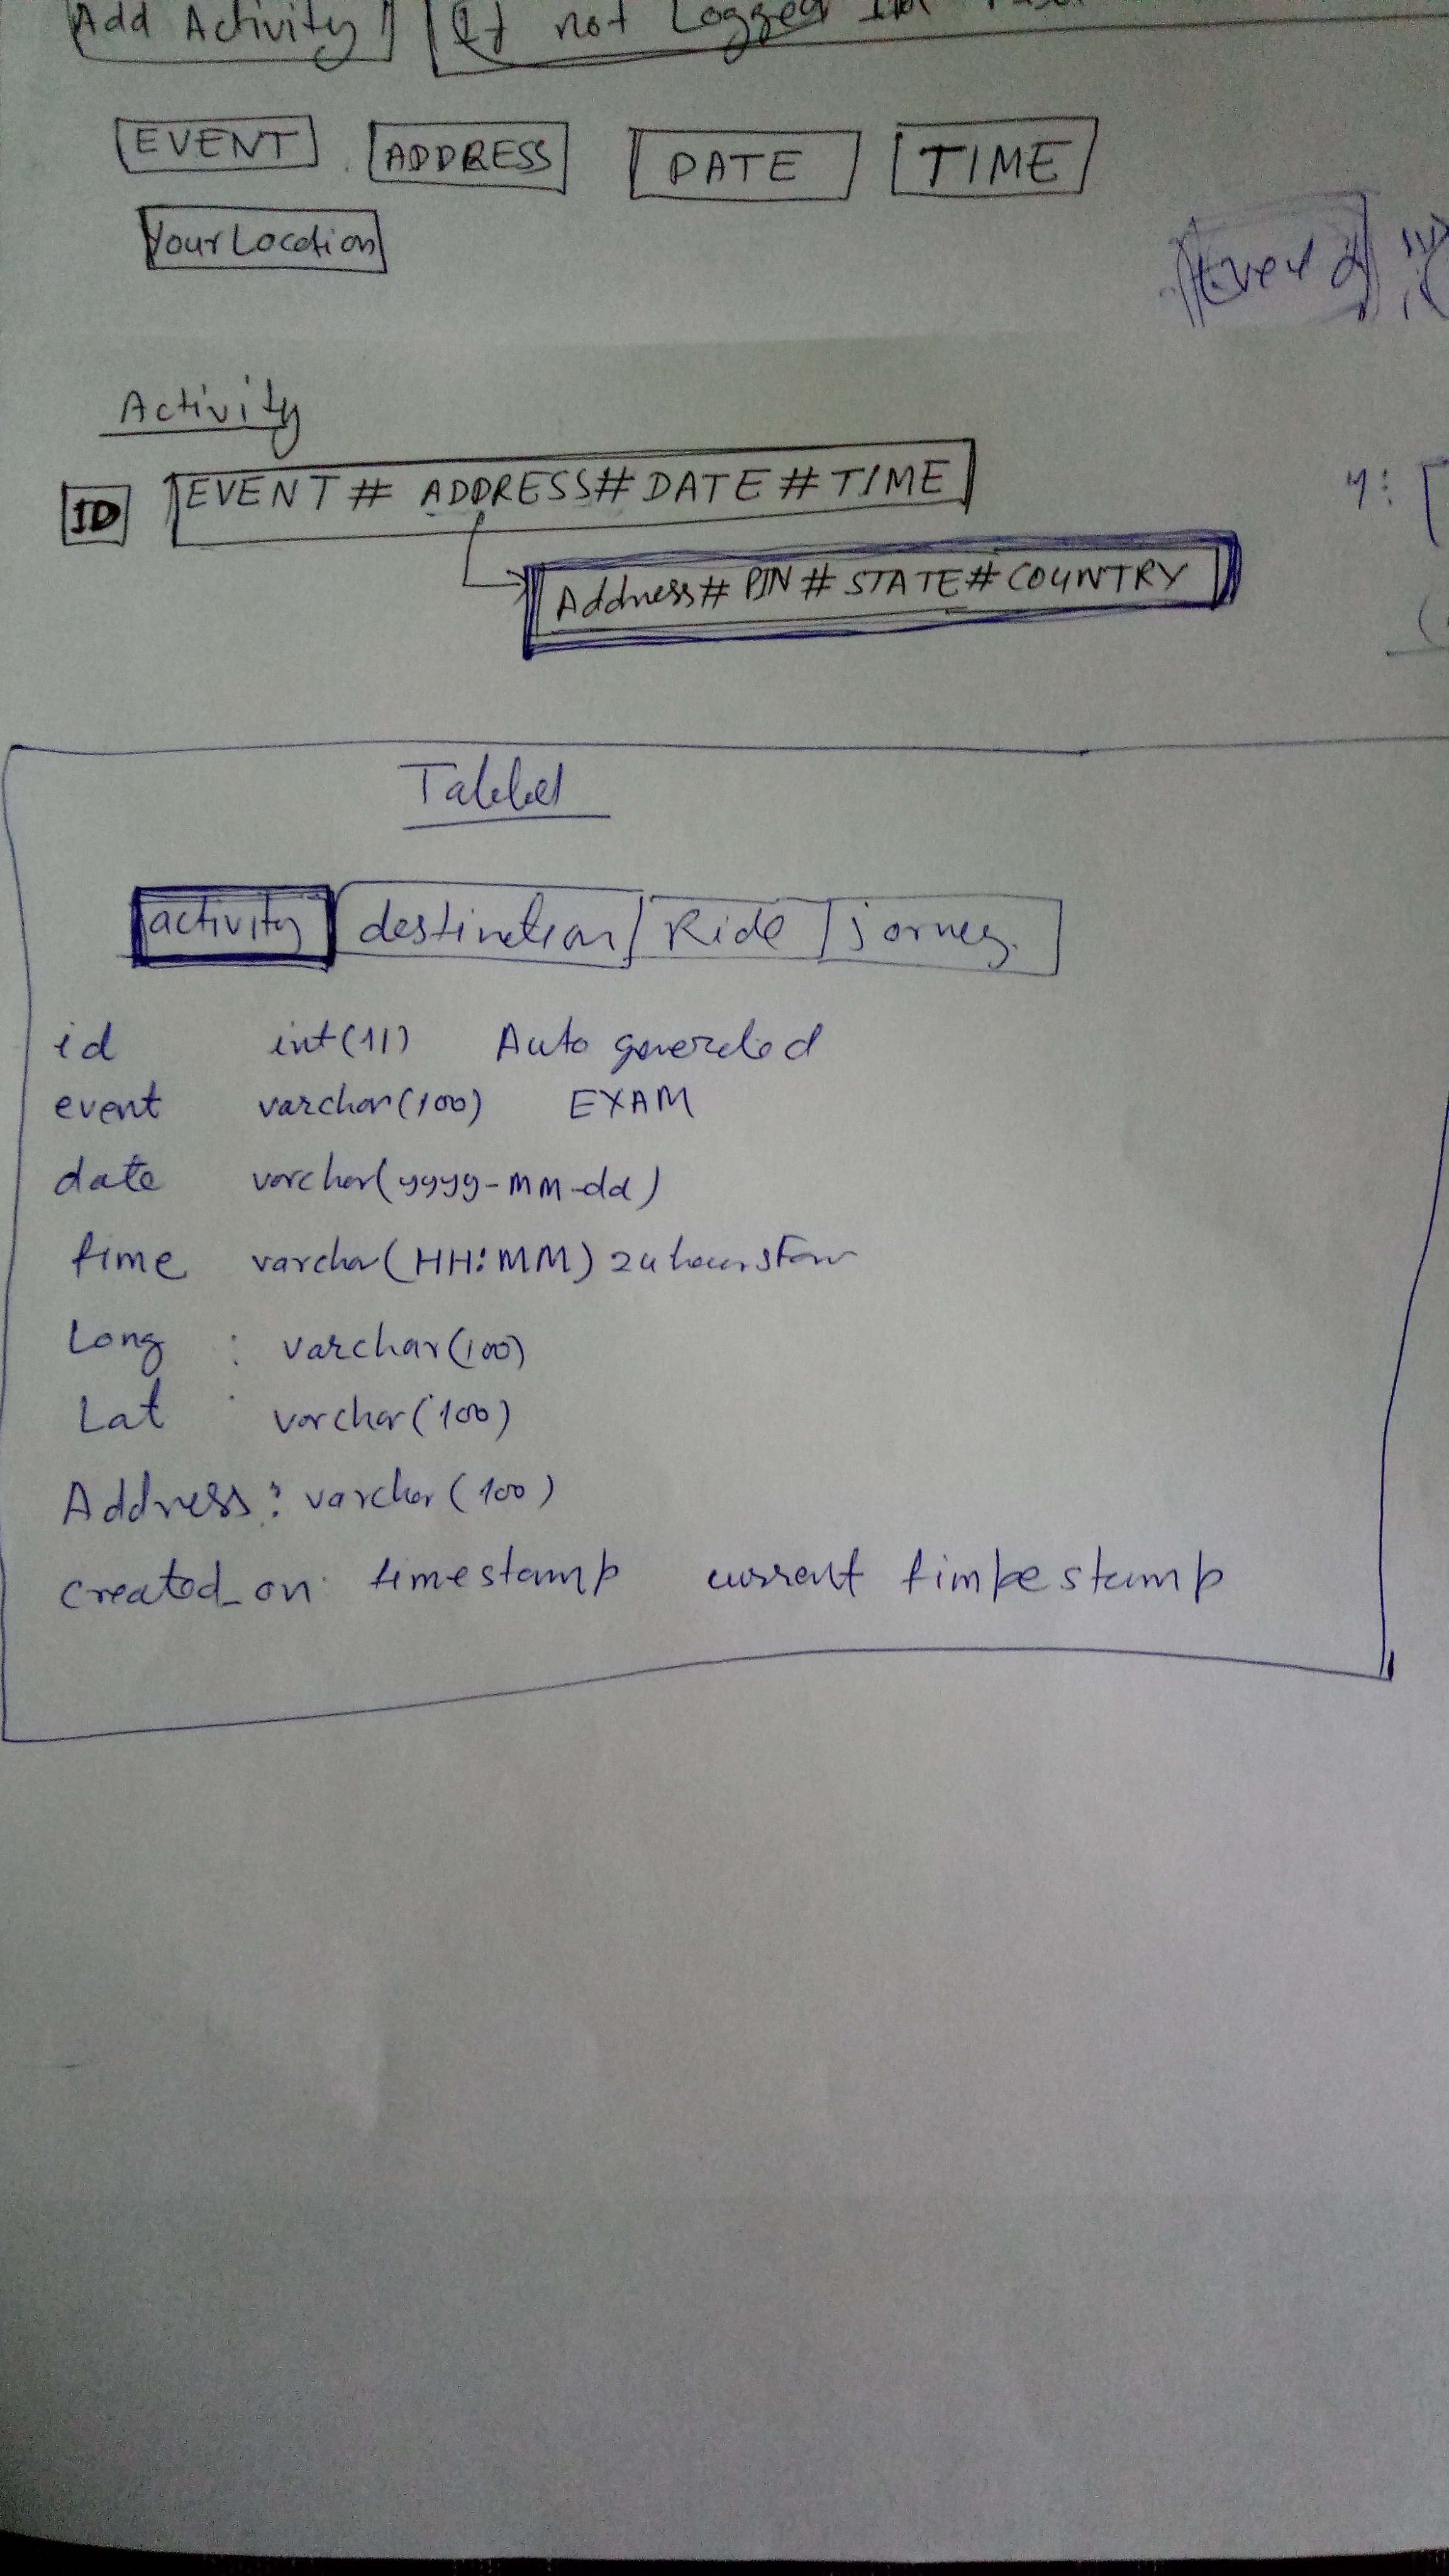 Add Activity If not Logged In
EVENT ADDRESS DATE TIME
Your Location
Activity
ID EVENT # ADDRESS # DATE # TIME
Address # PIN # STATE # COUNTRY
activity destination Ride jorney
id int(11) Auto generated
event varchar(100) EXAM
date varchar(yyyy-MM-dd)
time varchar(HH:MM) 24 hours
Long : varchar(100)
Lat : varchar(100)
Address : varchar(100)
created_on timestamp current timpestamp